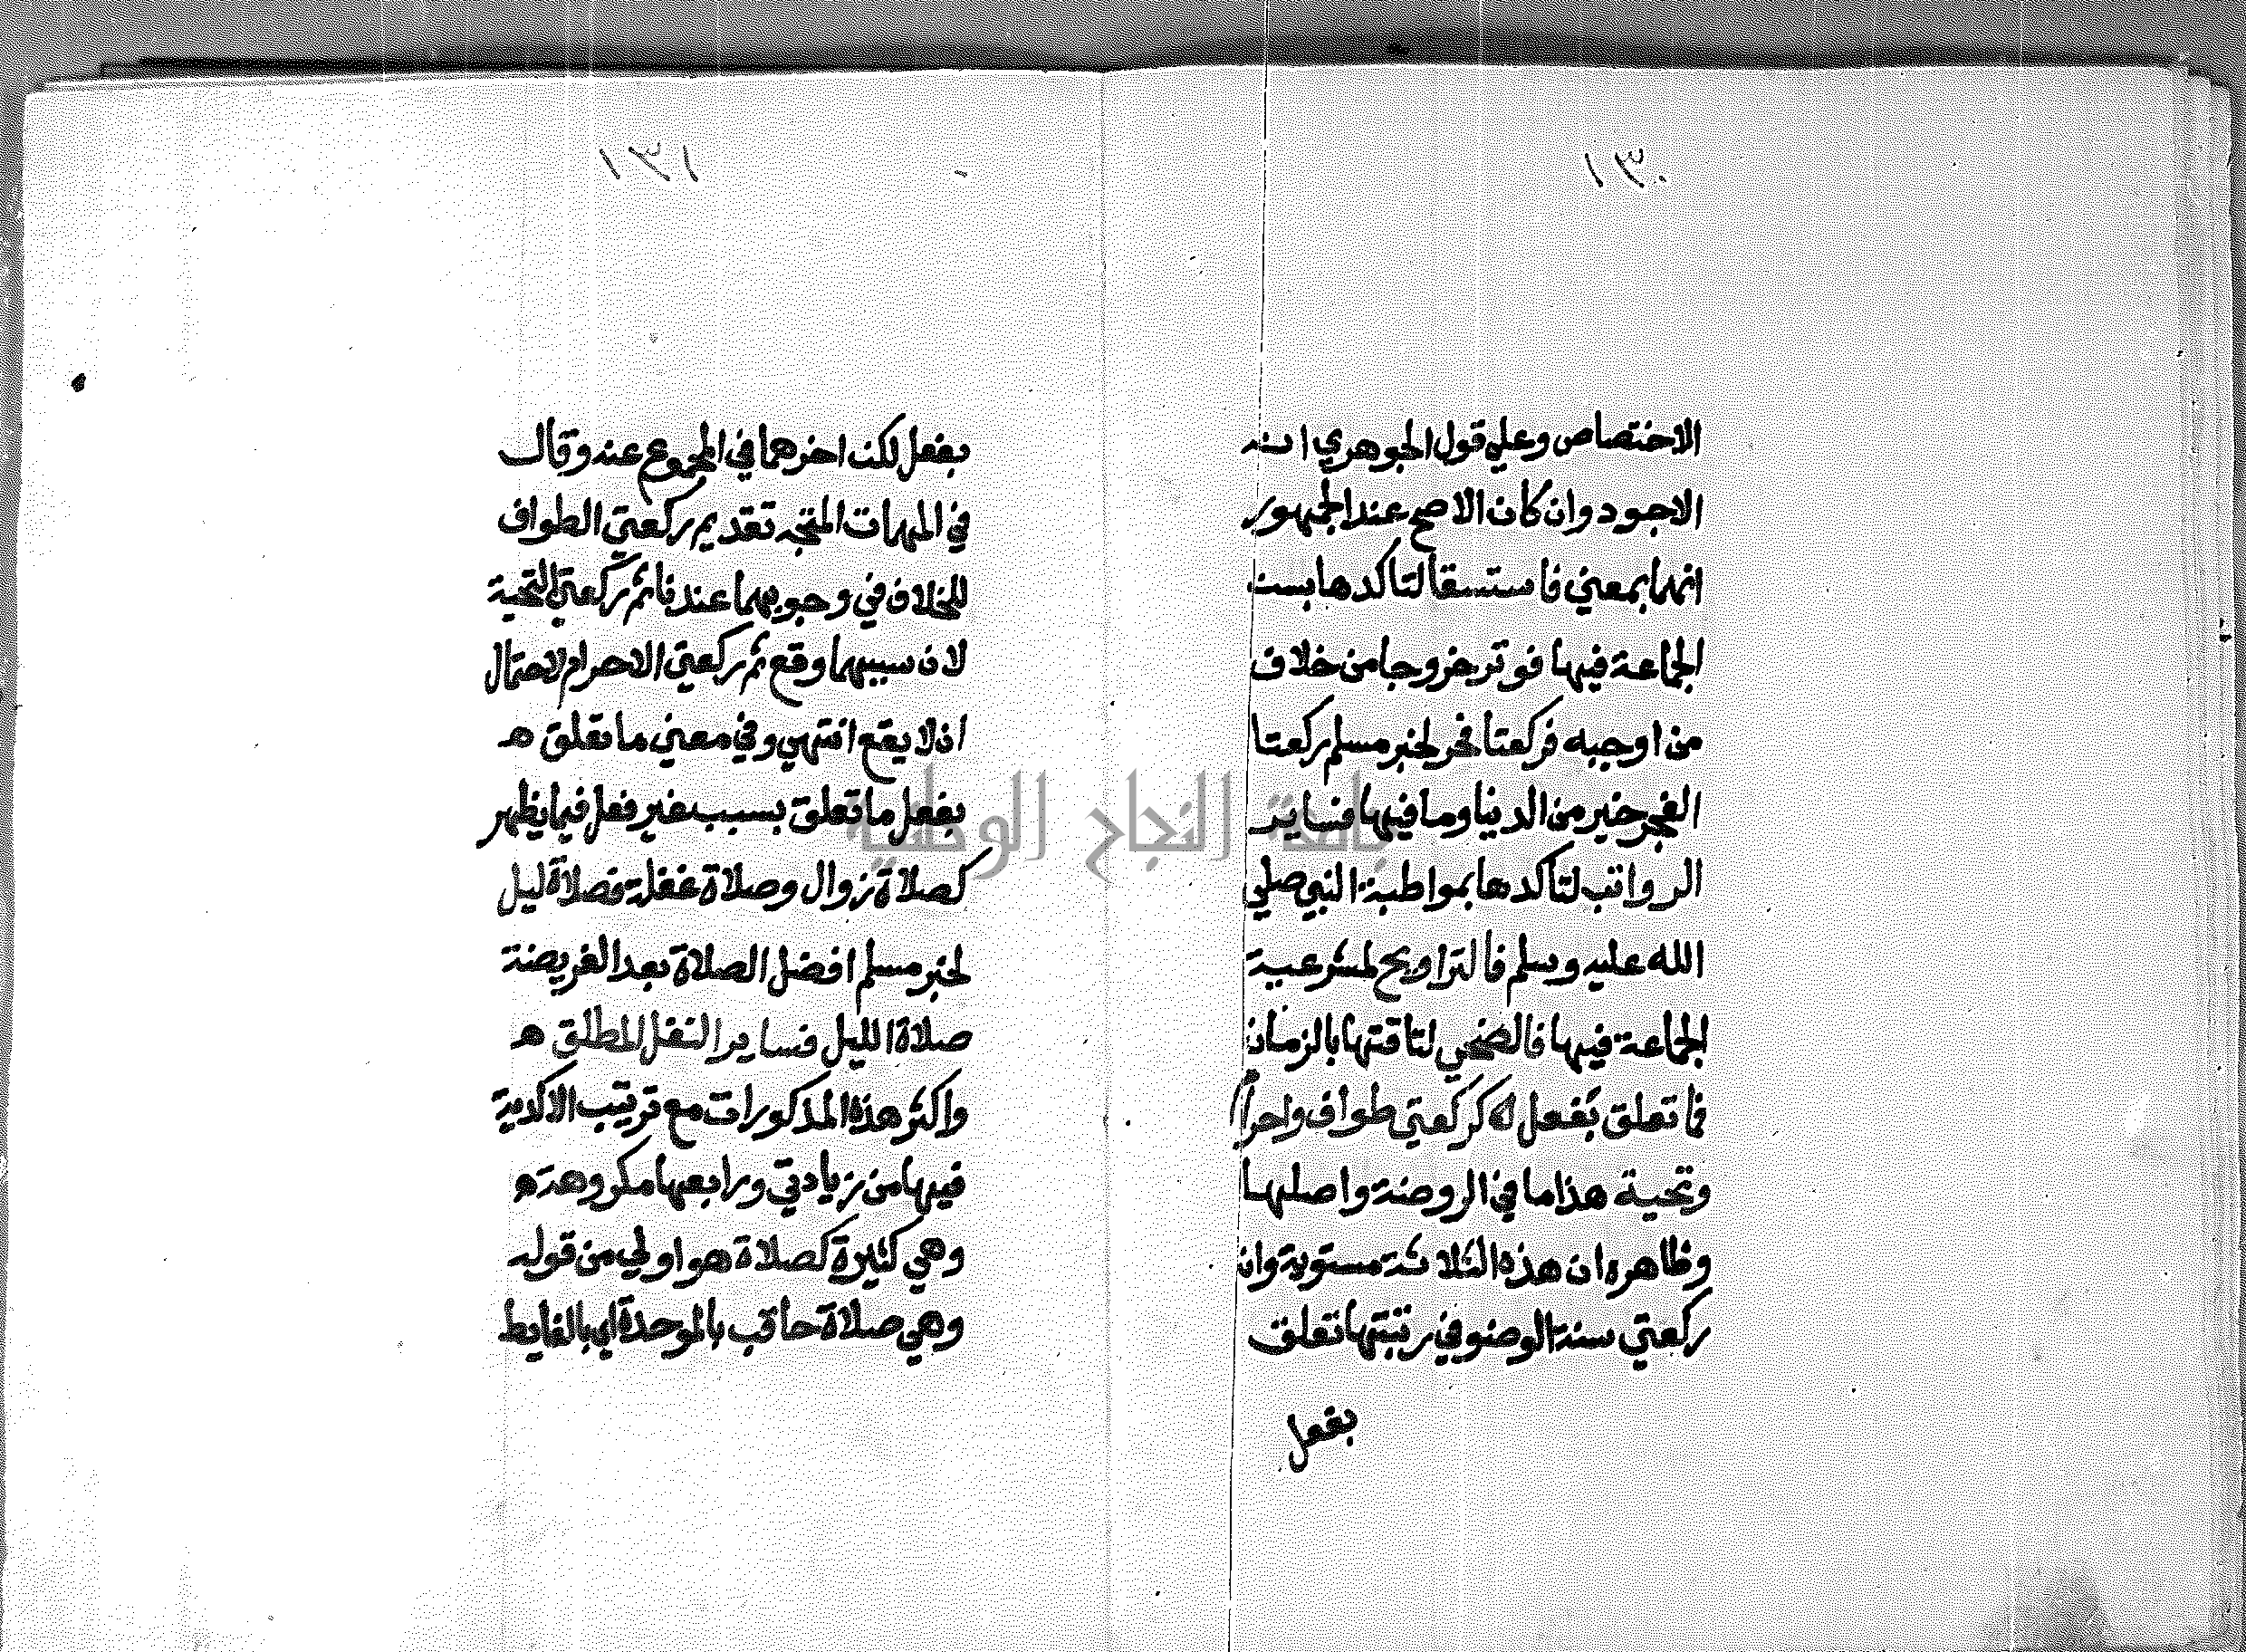 ١٣٠
الاختصاص وعليه قول الجوهري انه
الاجود وان كان الاصح عند الجمهور
انهما بمعني فاستسقا لتاكدها بسن
الجماعة فيها فوتر خروجا من خلاف
من اوجبه فركعتا فجر لخبر مسلم ركعتا
الفجر خير من الدنيا وما فيها فساير
الرواتب لتاكدها بمواظبة النبي صلي
الله عليه وسلم فالتراويح لمشرعية
الجماعة فيها فالضحي لتاقتها بالزمان
فما تعلق بفعل له كركعتي طواف واحرام
وتحية هذا ما في الروضة واصلها
وظاهره ان هذه الثلاثة مستوية وان
ركعتي سنة الوضو في رتبتها تعلق
بفعل
١٣١
بفعل لكن اخرهما في المجموع عنه وقال
في المهمات المتجه تقديم ركعتي الطواف
للخلاف في وجوبهما عندنا ثم ركعتي التحية
لان سببهما وقع ثم ركعتي الاحرام لاحتمال
ان لا يقع انتهي وفي معني ما تعلق ه
بفعل ما تعلق بسبب غير فعل فيما يظهر
كصلاة زوال وصلاة غفلة فصلاة ليل
لخبر مسلم افضل الصلاة بعد الفريضة
صلاة الليل فساير النفل المطلق ه
واكثر هذه المذكورات مع ترتيب الاكدية
فيها من زيادتي ورابعها مكروهة ه
وهي كثيرة كصلاة هو اولي من قوله
وهي صلاة حاقب بالموحدة اي بالغايط
جامعة النجاح الوطنية